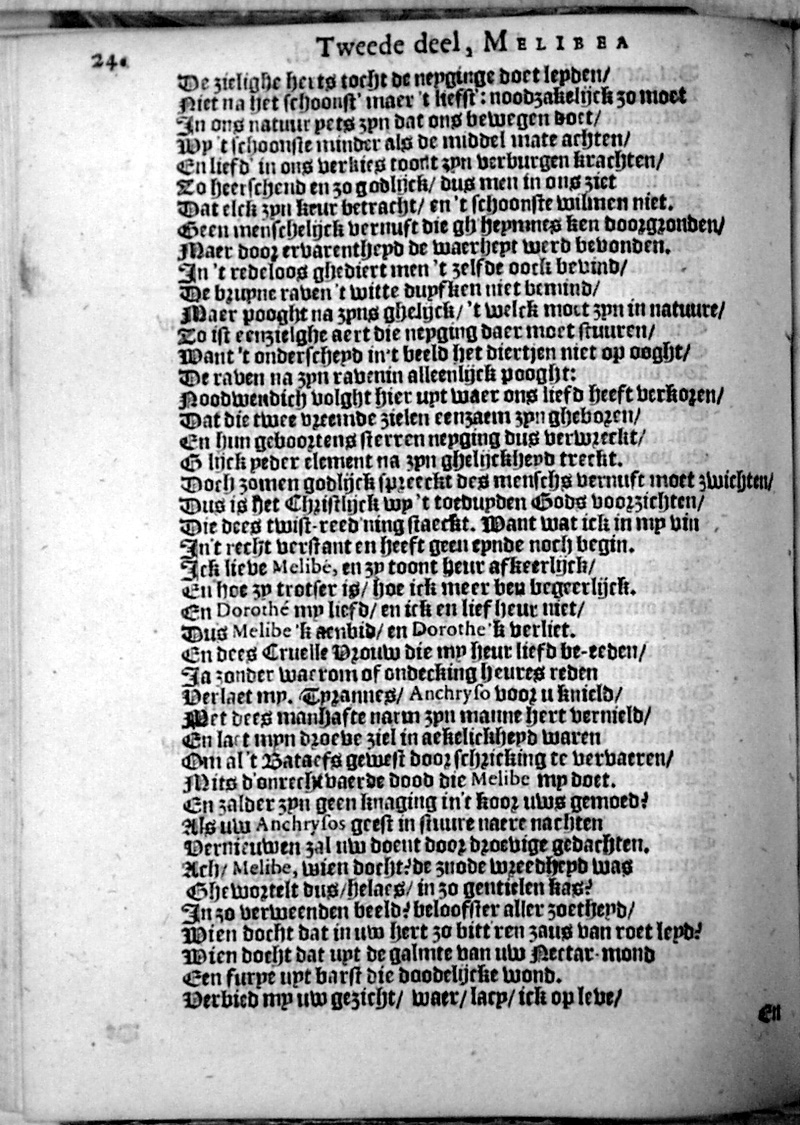 24.
Tweede deel, MELIBEA
De zielighe herts tocht de neyginge doet leyden/
Niet na het schoonst' maer 't liefst': noodzakelijck zo moet
In ons natuur yets zyn dat ons bewegen doet/
Wy 't schoonste minder als de middel mate achten/
En liefd' in ons verkies toont zyn verburgen krachten/
Zo heerschend en zo godlijck/ dus men in ons ziet
Dat elck zyn keur betracht/ en 't schoonste wilmen niet.
Geen menschelijck vernuft die gh'heymnes ken doorgronden/
Maer door ervarentheyd de waerheyt werd bevonden.
In 't redeloos ghediert men 't zelfde oock bevind/
De bruyne raven 't witte duyfken niet bemind/
Maer pooght na zyns ghelijck/ 't welck moet zyn in natuure/
Zo ist eenzielghe aert die neyging daer moet stuuren/
Want 't onderscheyd in't beeld het diertjen niet op ooght/
De raven na zyn ravenin alleenlijck pooght:
Noodwendich volght hier uyt waer ons liefd heeft verkozen/
Dat die twee vreemde zielen eenzaem zyn ghebozen/
En hun geboortens sterren neyging dus verwreckt/
G'lijck yeder element na zyn ghelijckheyd treckt.
Doch zomen godlijck spreeckt des menschs vernuft moet zwichten/
Dus is het Christlijck wy 't toeduyden Gods voorzichten/
Die dees twist-reed'ning staeckt. Want wat ick in my vin
In't recht verstant en heeft geen eynde noch begin.
Ick lieve Melibé, en zy toont heur afkeerlijck/
En hoe zy trotser is/ hoe ick meer ben begeerlijck.
En Dorothé my liefd/ en ick en lief heur niet/
Dus Melibe 'k aenbid/ en Dorothe 'k verliet.
En dees Cruelle Vrouw die my heur liefd be-eeden/
Ja zonder waerom of ondecking heures reden
Verlaet my. Tyrannes/ Anchryso voor u knield/
Met dees manhafte narm zyn manne hert vernield/
En laet myn droeve ziel in aekelickheyd waren
Om al 't Bataefs gewest door schricking te vervaeren/
Mits d'onrechtvaerde dood die Melibe my doet.
En zalder zyn geen knaging in't koor uws gemoed?
Als uw Anchrysos geest in stuure naere nachten
Vernieuwen zal uw doent door droevige gedachten.
Ach/ Melibe, wien docht? de znode wreedheyd was
Ghewortelt dus/ helaes/ in zo gentielen kas?
In zo verweenden beeld? beloofster aller zoetheyd/
Wien docht dat in uw hert zo bitt'ren zaus van roet leyd?
Wien docht dat uyt de galmte van uw Nectar-mond
Een furye uyt barst die doodelijcke wond.
Verbied my uw gezicht/ waer/ laey/ ick op leve/
En